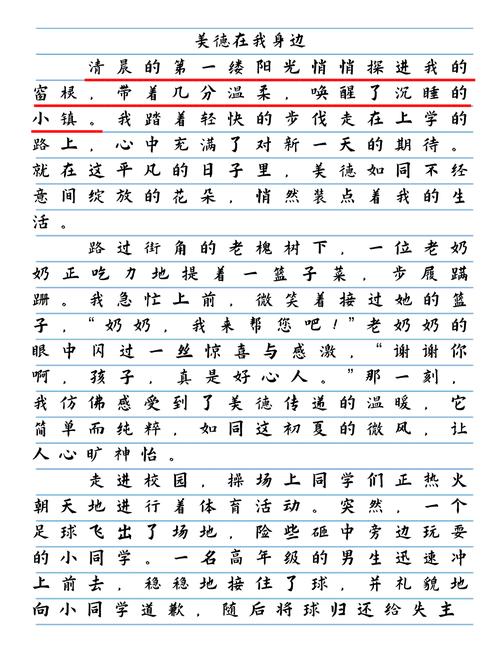 美德在我身边
清晨的第一缕阳光悄悄探进我的
窗根，带着几分温柔，唤醒了沉睡的
小镇。我踏着轻快的步伐走在上学的
路上，心中充满了对新一天的期待。
就在这平凡的日子里，美德如同不经
意间绽放的花朵，悄然装点着我的生
活。
路过街角的老槐树下，一位老奶
奶正吃力地提着一篮子菜，步履蹒
跚。我急忙上前，微笑着接过她的篮
子，“奶奶，我来帮您吧！”老奶奶的
眼中闪过一丝惊喜与感激，“谢谢你
啊，孩子，真是好心人。”那一刻，
我仿佛感受到了美德传递的温暖，它
简单而纯粹，如同这初夏的微风，让
人心旷神怡。
走进校园，操场上同学们正热火
朝天地进行着体育活动。突然，一个
足球飞出了场地，险些砸中旁边玩耍
的小同学。一名高年级的男生迅速冲
上前去，稳稳地接住了球，并礼貌地
向小同学道歉，随后将球归还给失主